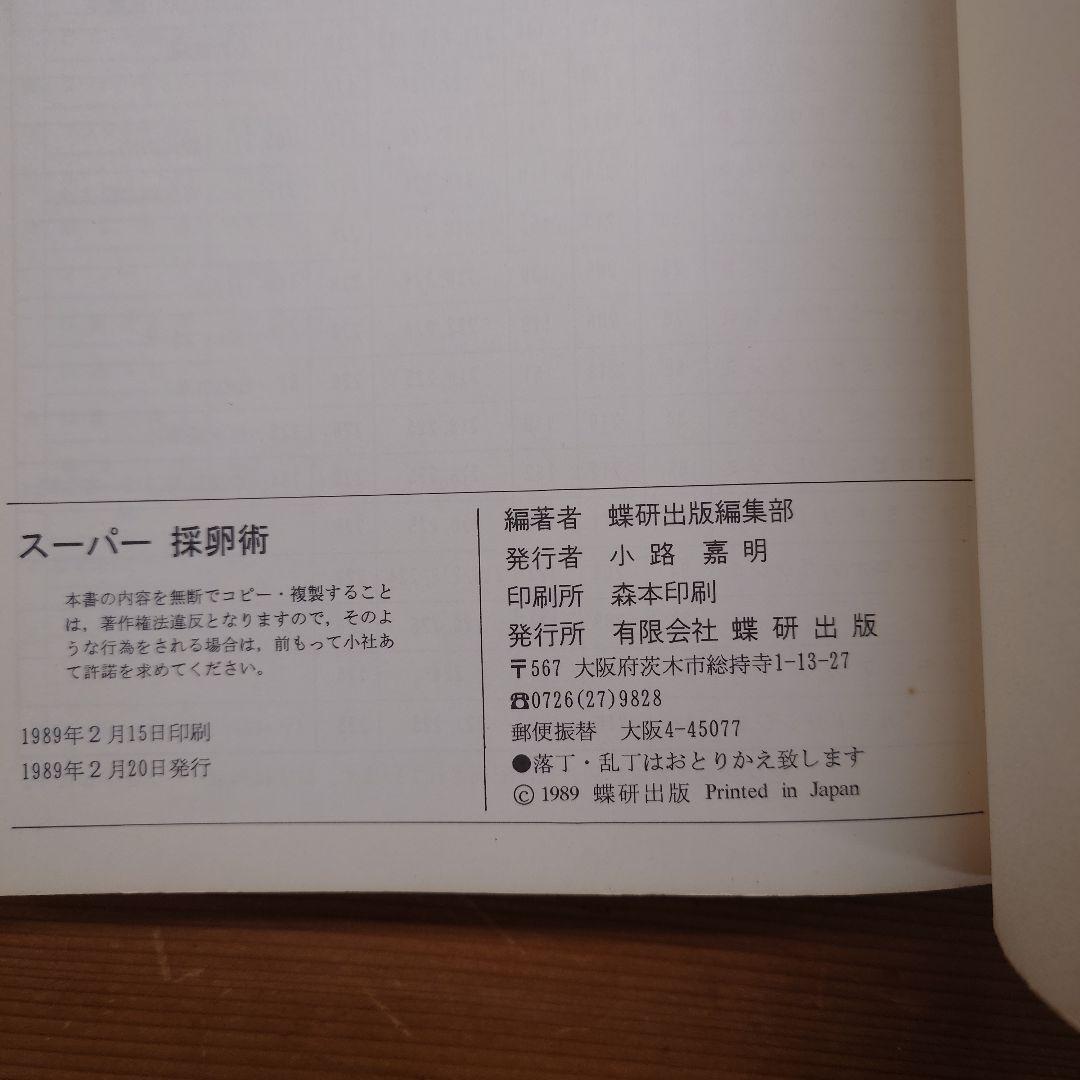 スーパー 採卵術
本書の内容を無断でコピー・複製すること
は，著作権法違反となりますので，そのよ
うな行為をされる場合は，前もって小社あ
て許諾を求めてください。
1989年2月15日印刷
1989年2月20日発行
編著者 蝶研出版編集部
発行者 小路 嘉明
印刷所 森本印刷
発行所 有限会社 蝶研出版
〒567 大阪府茨木市総持寺1-13-27
☎0726(27)9828
郵便振替 大阪4-45077
●落丁・乱丁はおとりかえ致します
© 1989 蝶研出版 Printed in Japan